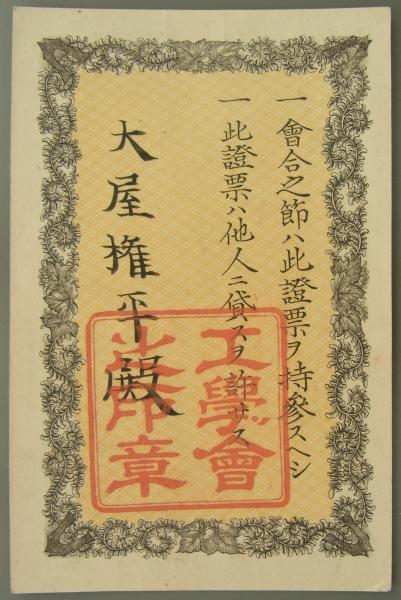 一會合之節ハ此證票ヲ持參スヘシ
一此證票ハ他人ニ貸スヲ許サス
大屋権平殿
工學會
之印章